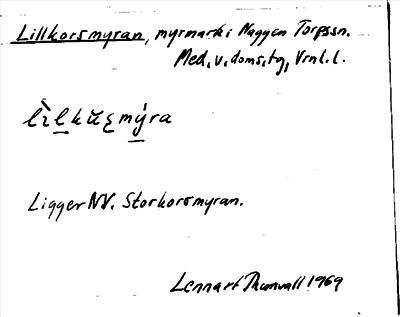 Lillkorsmyran, myrmark i Haggen Torpssn.
Med. v. doms. tg, Vrnl. l.
lìlkŭʂmýra
Ligger NV. Storkorsmyran.
Lennart Thunvall 1969